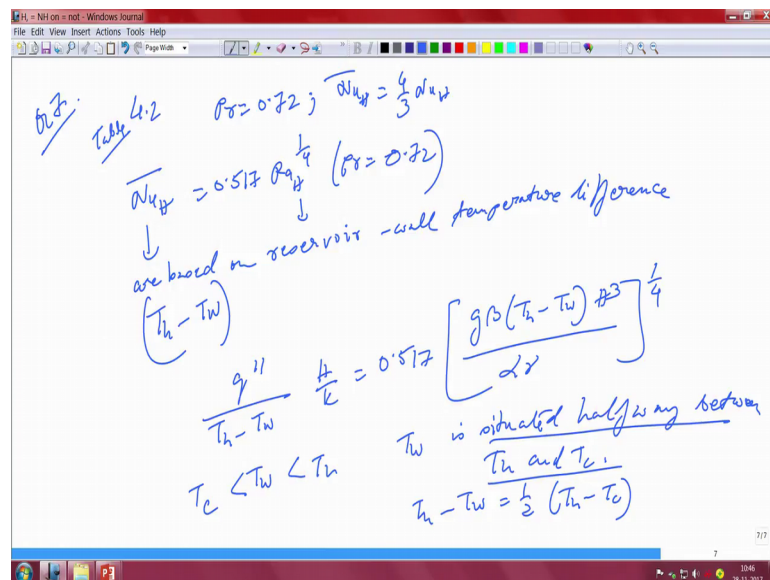 H, = NH on = not - Windows Journal
File Edit View Insert Actions Tools Help
Page Width
Table 4.2 Pr = 0.72 ; N̅u̅_H = 4/3 Nu_H
N̅u̅_H = 0.517 Ra_H^{1/4} (Pr = 0.72)
↓ ↓
are based on reservoir - wall temperature difference
(T_h - T_w)
q'' / (T_h - T_w) H/k = 0.517 [gβ(T_h - T_w) H³ / αν]^{1/4}
T_c < T_w < T_h T_w is situated halfway between
T_h and T_c.
T_h - T_w = 1/2 (T_h - T_c)
7/7
7
10:46
28-11-2017